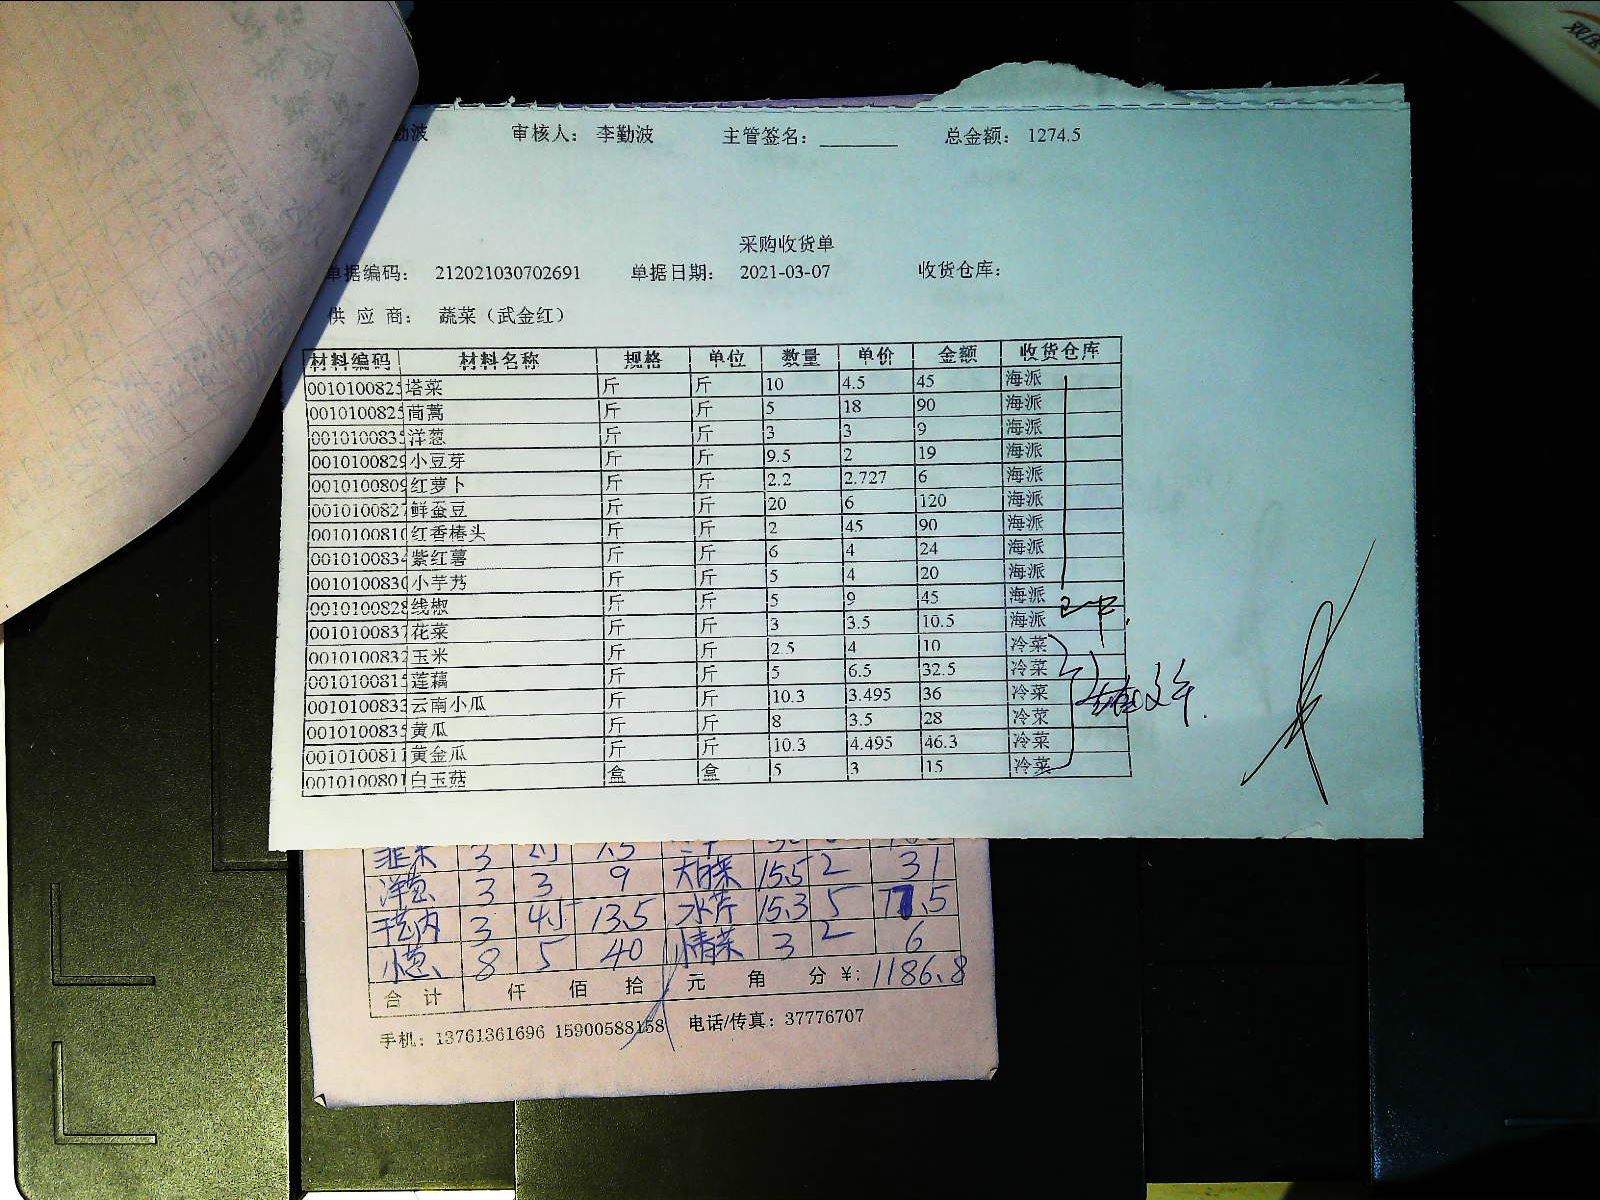 勤波 审核人： 李勤波 主管签名：________ 总金额： 1274.5
采购收货单
单据编码： 212021030702691 单据日期： 2021-03-07 收货仓库：
供 应 商： 蔬菜（武金红）
材料编码 材料名称 规格 单位 数量 单价 金额 收货仓库
001010082 塔菜 斤 斤 10 4.5 45 海派
001010082 茼蒿 斤 斤 5 18 90 海派
001010083 洋葱 斤 斤 3 3 9 海派
001010082 小豆芽 斤 斤 9.5 2 19 海派
001010080 红萝卜 斤 斤 2.2 2.727 6 海派
001010082 鲜蚕豆 斤 斤 20 6 120 海派
001010081 红香椿头 斤 斤 2 45 90 海派
001010083 紫红薯 斤 斤 6 4 24 海派
001010083 小芋艿 斤 斤 5 4 20 海派
001010082 线椒 斤 斤 5 9 45 海派
001010083 花菜 斤 斤 3 3.5 10.5 海派
001010083 玉米 斤 斤 2.5 4 10 冷菜
001010081 莲藕 斤 斤 5 6.5 32.5 冷菜
001010083 云南小瓜 斤 斤 10.3 3.495 36 冷菜
001010083 黄瓜 斤 斤 8 3.5 28 冷菜
001010081 黄金瓜 斤 斤 10.3 4.495 46.3 冷菜
001010080 白玉菇 盒 盒 5 3 15 冷菜
韭菜 3 2.5 7.5
洋葱 3 3 9 大白菜 15.5 2 31
3 4.5 13.5 水芹 15.3 5 5
小葱 8 5 40 3 2 6
合 计 仟 佰 拾 元 角 分 ¥: 1186.8
手机：13761361696 15900588158 电话/传真：37776707